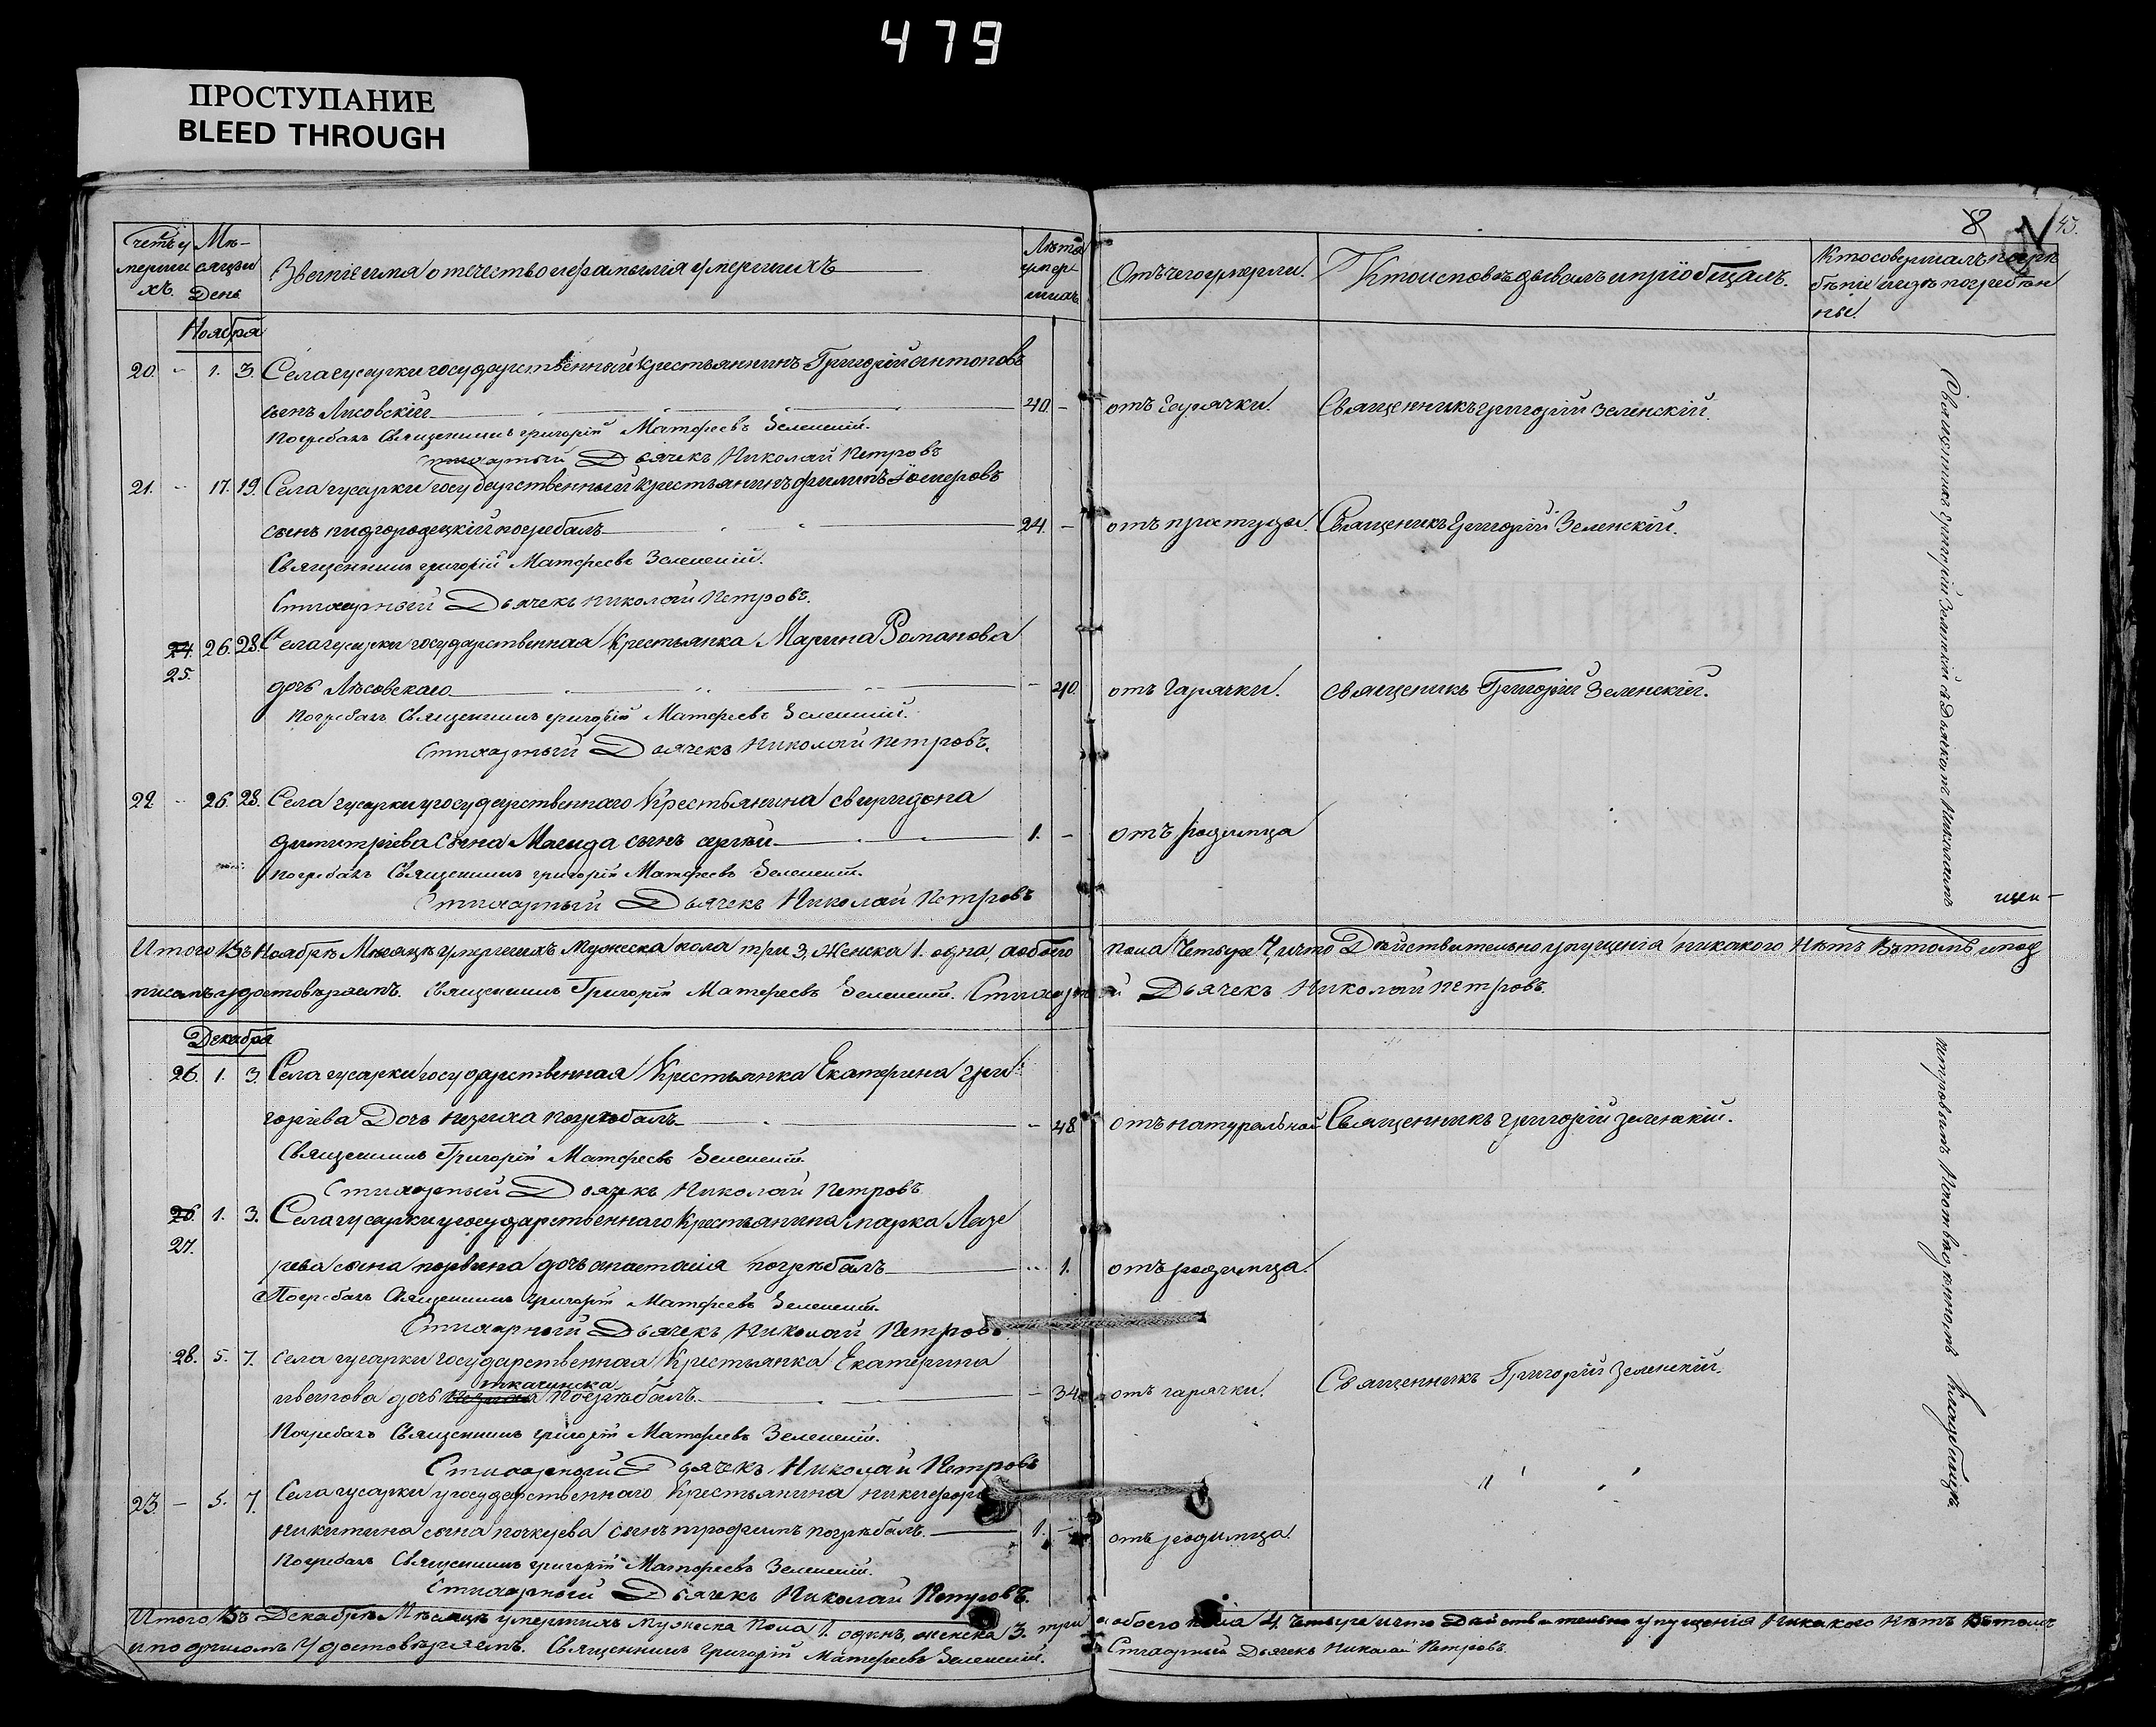 479
ПРОСТУПАНИЕ
BLEED THROUGH
8
43.
Счетъ у
мерши
хъ.
Мѣ-
сяцъ и
День
Званіе имя отечество и фамилія умершихъ
Лѣта
умер
шихъ
Отъ чего умерли.
Кто исповѣдывалъ и пріобщалъ.
Кто совершалъ погре
бѣніе и гдѣ погребѣн
ны.
Ноября
20. - 1. 3. Села гусарки государственный крестьянинъ Григорій Антоновъ
сынъ Лисовскій 40. - отъ Горячки. Священникъ григорій Зеленскій.
Погребалъ Священникъ григорій Матфеевъ Зеленскій.
Стихарный Дьячекъ Николай Петровъ
21. - 17. 19. Села гусарки государственный крестьянинъ филипъ
сынъ пидгородецкій погребалъ 24. - отъ Священикъ Григорій Зеленскій.
Священникъ григорій Матфеевъ Зеленскій.
Стихарный Дьячекъ Николай Петровъ.
24. 26. 28. Села гусарки государственная Крестьянка Марина Романова
25.
дочь Лѣсовскаго - 40. отъ Гарячки. священикъ Григорій Зеленскій.
Погребалъ Священникъ григорій Матфеевъ Зеленскій.
Стихарный Дьячекъ Николай Петровъ.
22. - 26. 28. Села гусарки у государственнаго Крестьянина свиридона
димитріева сына сынъ сергѣй 1. - отъ родимца
погребалъ Священникъ григорій Матфеевъ Зеленскій.
Стихарный Дьячекъ Николай Петровъ
Священникъ григорій Зеленскій съ Дьячкомъ Николаемъ
Итого Въ Ноябрѣ Мѣсяцѣ умершихъ Мужеска пола три 3, Женска 1. одна, а обоего пола Четыре 4, и что Дѣйствительно упущенія никакого Нѣтъ Въ томъ и под
писомъ удостовѣряемъ. Священникъ Григорій Матфеевъ Зеленскій. Стихарный Дьячекъ Николай Петровъ.
Декабря
26. 1. 3. Села гусарки государственная Крестьянка Екатерина гри
горіева Дочь погрѣбалъ - 48. отъ натуральной Священникъ григорій зеленскій.
Священникъ Григорій Матфеевъ Зеленскій.
Стихарный Дьячекъ Николай Петровъ
26. 1. 3. Села гусарки у государственнаго Крестьянина марка Лазе
27.
рева сына дочь анастасія погрѣбалъ 1. отъ родимца.
Погребалъ Священникъ Григорій Матфеевъ Зеленскій.
Стихарный Дьячекъ Николай Петровъ
28. 5. 7. села гусарки государственная Крестьянка Екатерина
ткачинска
иванова дочь погрѣбалъ. - 34. отъ гарячки. Священникъ Григорій Зеленскій.
Погребалъ Священникъ григорій Матфеевъ Зеленскій.
Стихарный Дьячекъ Николай Петровъ
23 - 5. 7. Села гусарки у государственнаго Крестьянина никифора
никитина сына сынъ трофимъ погрѣбалъ. 1. - отъ родимца.
Погребалъ Священникъ григорій Матфеевъ Зеленскій.
Стихарный Дьячекъ Николай Петровъ.
петровымъ на кладбищѣ
Итого Въ Декабрѣ Мѣсяцѣ умершихъ мужеска Пола 1. одинъ, женска 3. три а обоего пола 4. четыре и что Дѣйствительно упущенія Никакого Нѣтъ Въ томъ
и подписомъ Удостовѣряемъ. Священникъ Григорій Матфеевъ Зеленскій. Стихарный Дьячекъ Николай Петровъ.